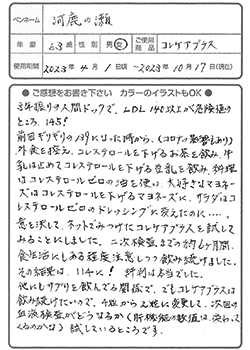 ペンネーム 河鹿の瀬
年齢 63才 性別 男・女 ご使用商品 コレケアプラス
使用期間 2023年 4月 1日頃 ~ 2023年 10月 17日(現在)
● ご感想をお書き下さい カラーのイラストもOK ●
3年振りの人間ドックで、LDL 140以上が危険域の
ところ、145!
前回ギリギリの139になった時から、(コロナの影響もあり)
外食を控え、コレステロールを下げるお茶を飲み、牛
乳は止めてコレステロールを下げる豆乳を飲み、料理
はコレステロールゼロの油を使い、大好きなマヨネー
ズはコレステロールを下げるマヨネーズに、サラダはコ
レステロールゼロのドレッシングに変えたのに・・・・。
意を決して、ネットでみつけたコレケアプラスを試して
みることにしました。二次検査までの約6ヶ月間、
食生活にもある程度注意しつつ飲み続けました。
その結果は、114に! 評判は本当でした。
他にもサプリを飲んでる関係で、でもコレケアプラスは
飲み続けたいので、4粒から2粒に変更して、次回の
血液検査がどうなるか(肝機能の数値は変わって
くるのかな)試しているところです。